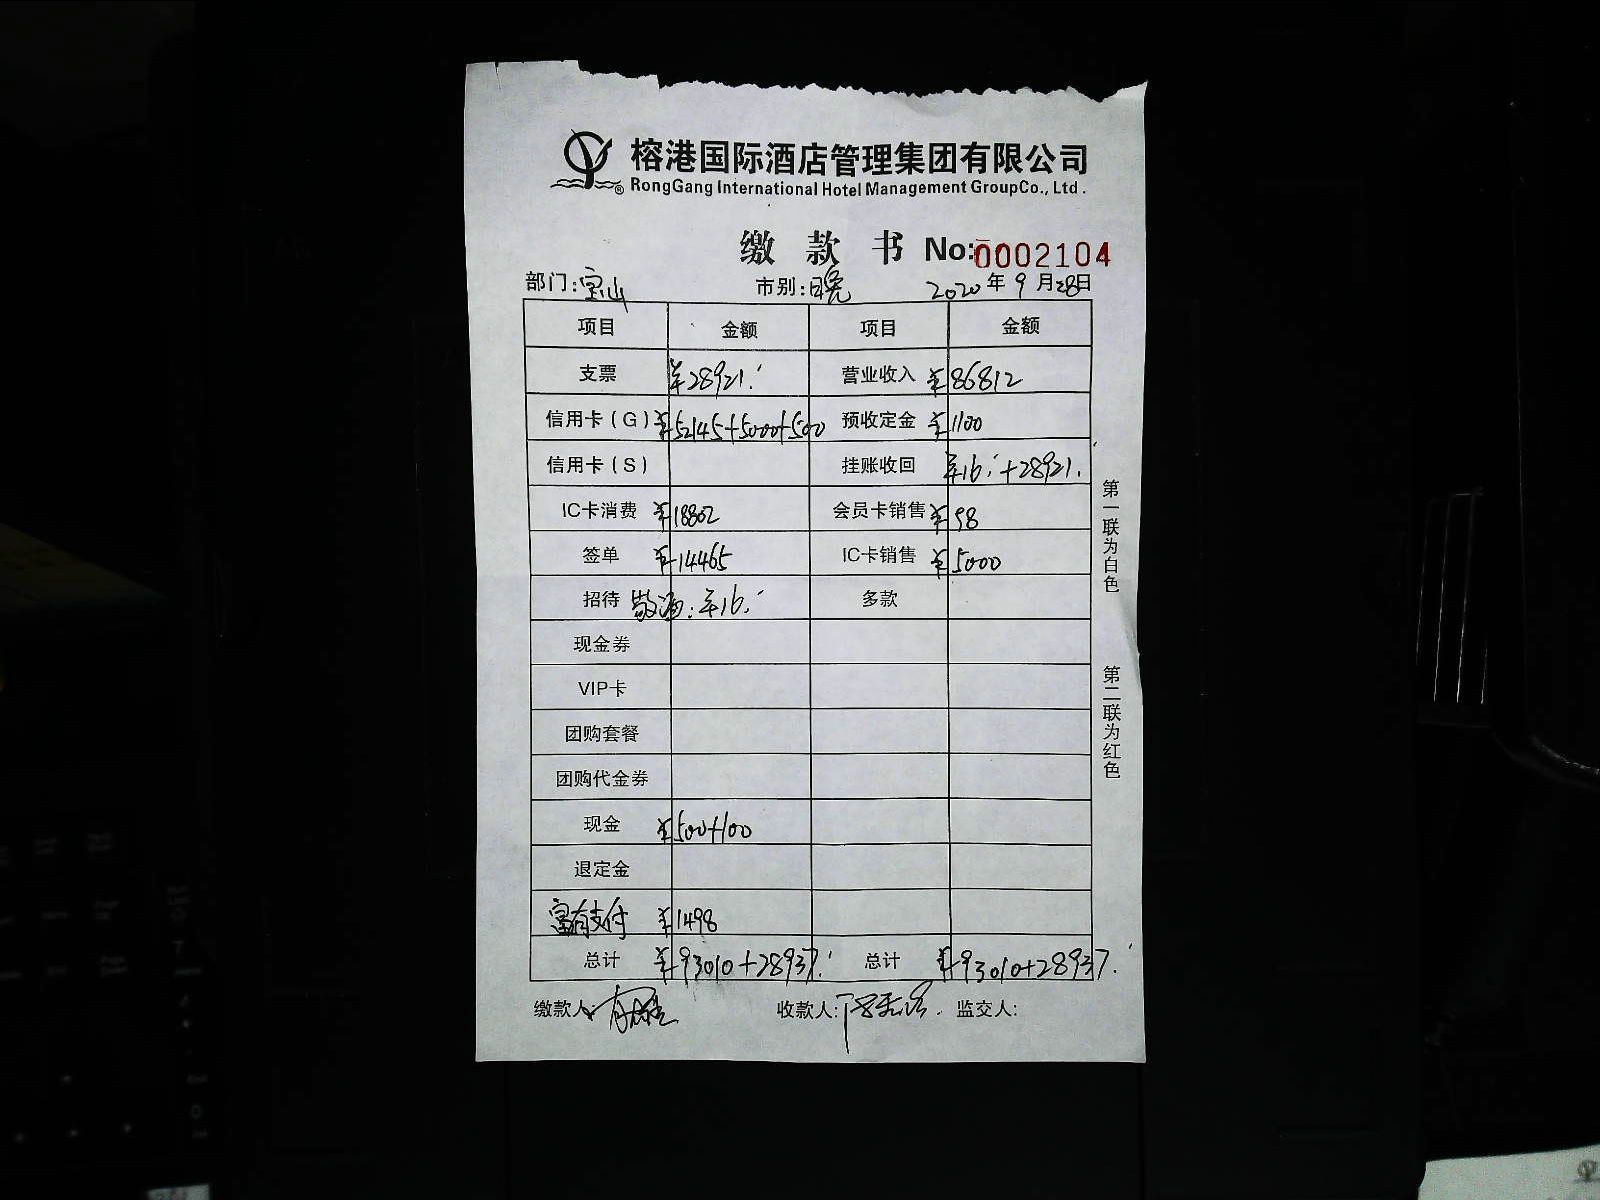 榕港国际酒店管理集团有限公司
RongGang International Hotel Management GroupCo., Ltd.
缴款书 No:0002104
部门:宝山 市别:晚 2020年9月28日
项目 金额 项目 金额
支票 ¥28921. 营业收入 ¥86812
信用卡(G) ¥52145+5000+500 预收定金 ¥1100
信用卡(S) 挂账收回 ¥16.+28921.
IC卡消费 ¥18802 会员卡销售 ¥98
签单 ¥14465 IC卡销售 ¥5000
招待 ¥16. 多款
现金券
VIP卡
团购套餐
团购代金券
现金 ¥500+100
退定金
富有支付 ¥1498
总计 ¥93010+28937. 总计 ¥93010+28937.
缴款人: 收款人: 监交人:
第一联为白色
第二联为红色